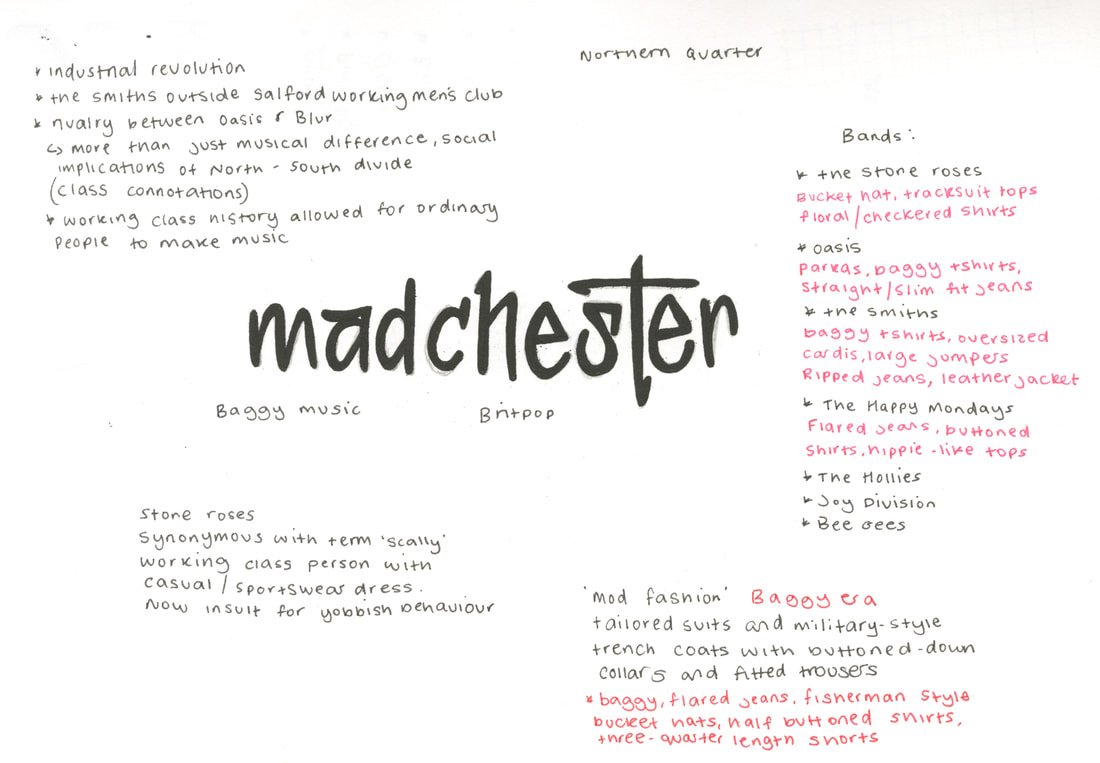 * industrial revolution
* the smiths outside salford working men's club
* rivalry between oasis & Blur
↳ more than just musical difference, social
implications of North - South divide
(class connotations)
* working class history allowed for ordinary
people to make music
Northern Quarter
Bands:
* the stone roses
Bucket hat, tracksuit tops
floral/checkered shirts
* oasis
parkas, baggy tshirts,
straight/slim fit jeans
* the smiths
baggy tshirts, oversized
cardis, large jumpers
Ripped jeans, leather jacket
* The Happy Mondays
Flared jeans, buttoned
shirts, hippie-like tops
* The Hollies
* Joy Division
* Bee Gees
madchester
Baggy music
Britpop
stone roses
synonymous with term 'scally'
working class person with
casual / sportswear dress.
Now insult for yobbish behaviour
'mod fashion' Baggy era
tailored suits and military-style
trench coats with buttoned-down
collars and fitted trousers
* baggy, flared jeans, fisherman style
bucket hats, half buttoned shirts,
three-quarter length shorts